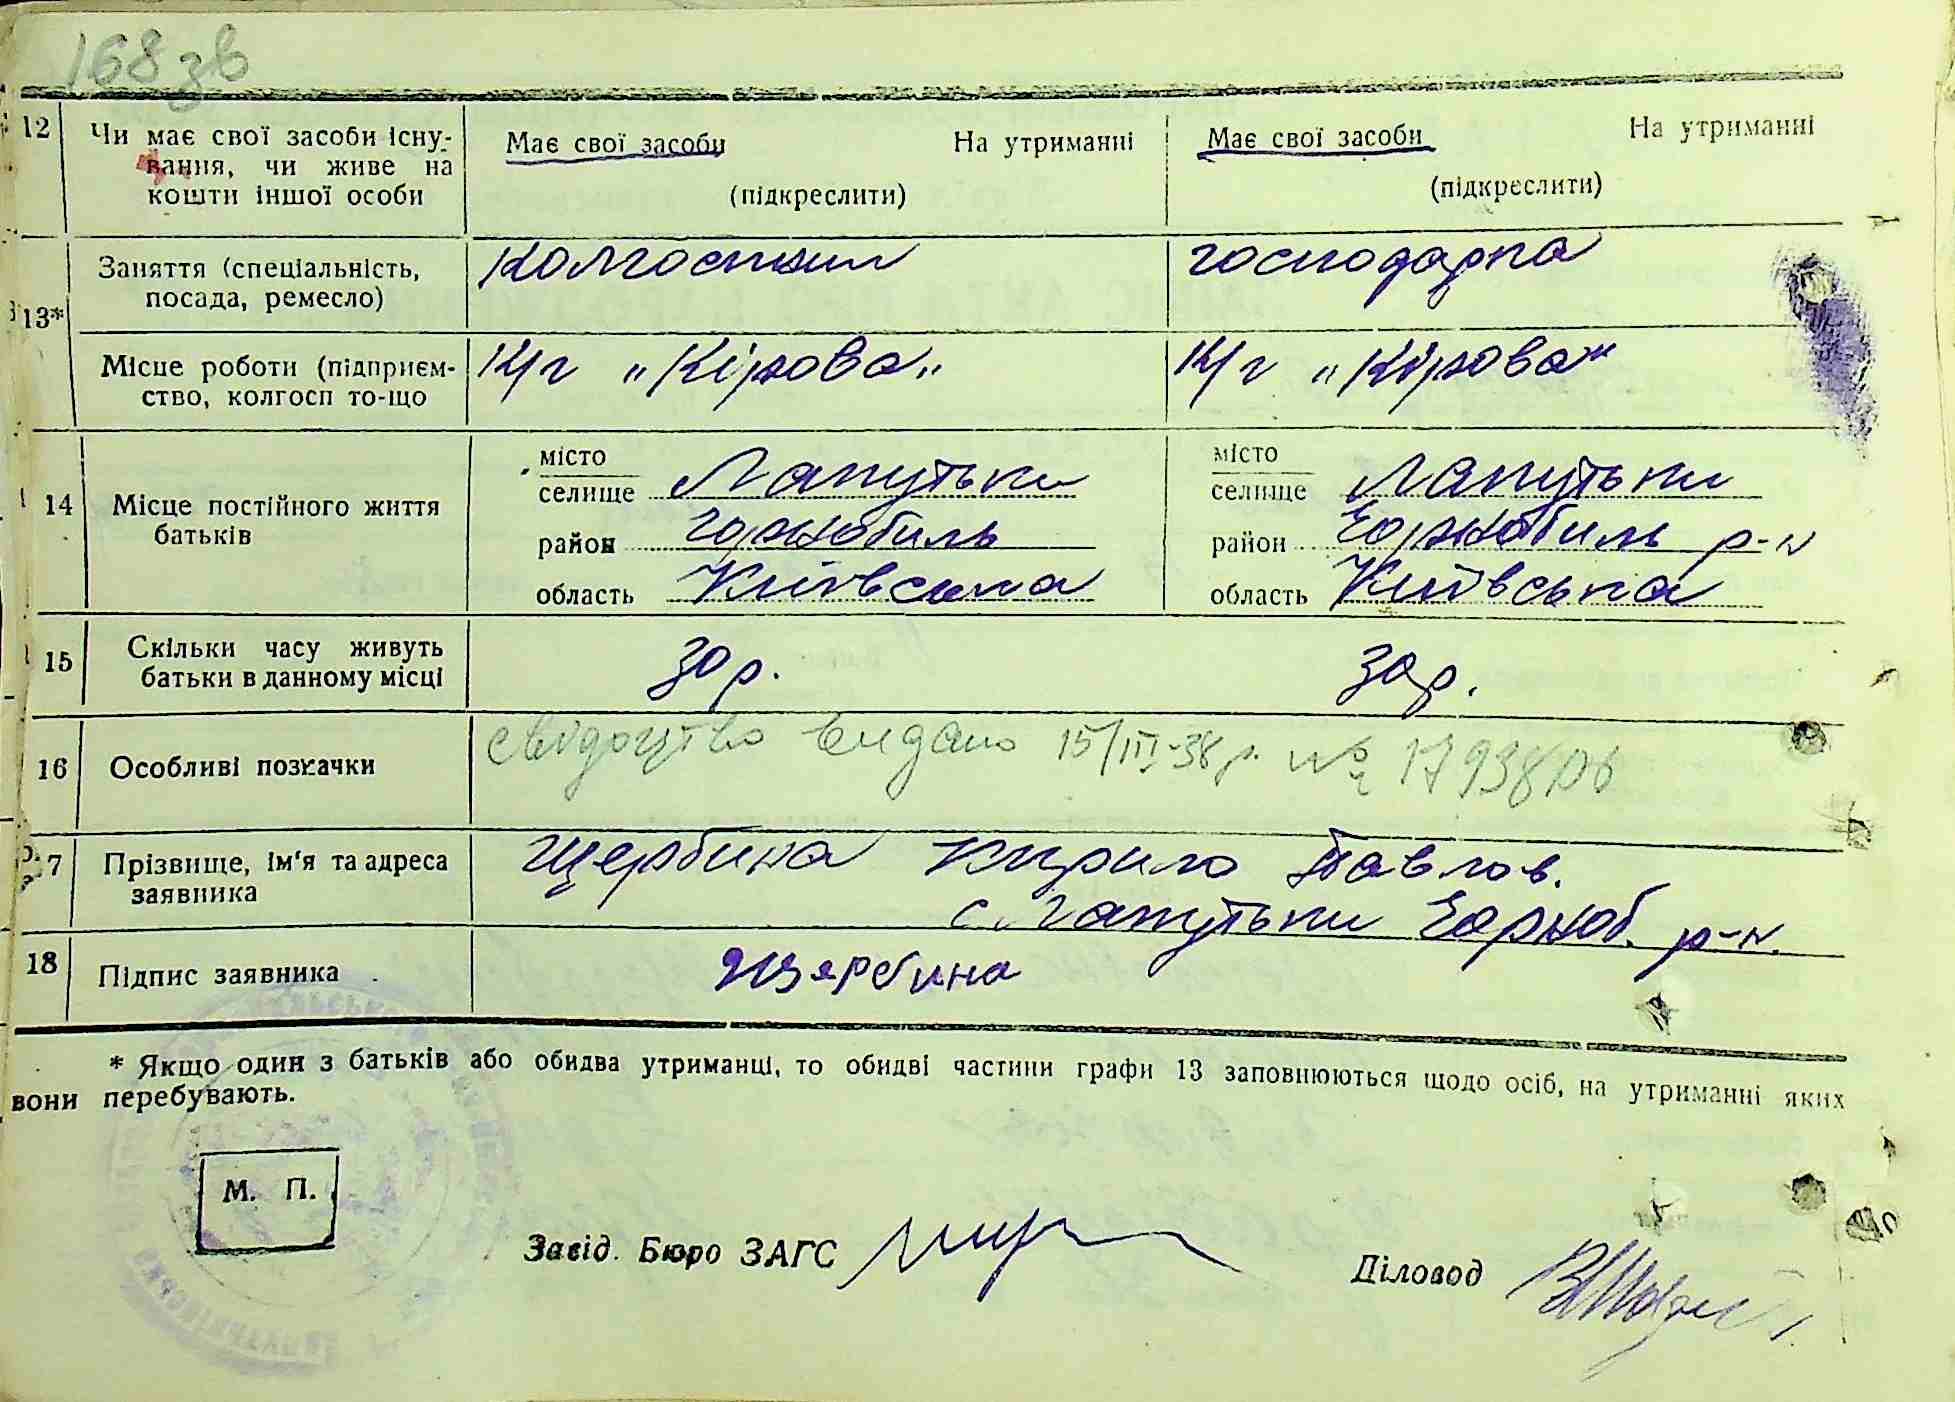 168 зв
12 Чи має свої засоби існу-
вання, чи живе на
кошти іншої особи
Має свої засоби На утриманні
(підкреслити)
Має свої засоби На утриманні
(підкреслити)
13*
Заняття (спеціальність,
посада, ремесло)
Колгоспник
господарка
Місце роботи (підприєм-
ство, колгосп то-що
К/г „Кірова„
К/г „Кірова"
14 Місце постійного життя
батьків
місто
селище Лапутьки
район Чорнобиль
область Київська
місто
селище Лапутьки
район Чорнобиль р-н
область Київська
15 Скільки часу живуть
батьки в данному місці
30 р.
30 р.
16 Особливі позначки
свідоцтво видано 15/III-38 р. №
7 Прізвище, ім'я та адреса
заявника
Щербина Кирило Павлов.
с. Лапутьки Чорноб. р-н.
18 Підпис заявника
Щербина
* Якщо один з батьків або обидва утриманці, то обидві частини графи 13 заповнюються щодо осіб, на утриманні яких
вони перебувають.
М. П.
Завід. Бюро ЗАГС
Діловод